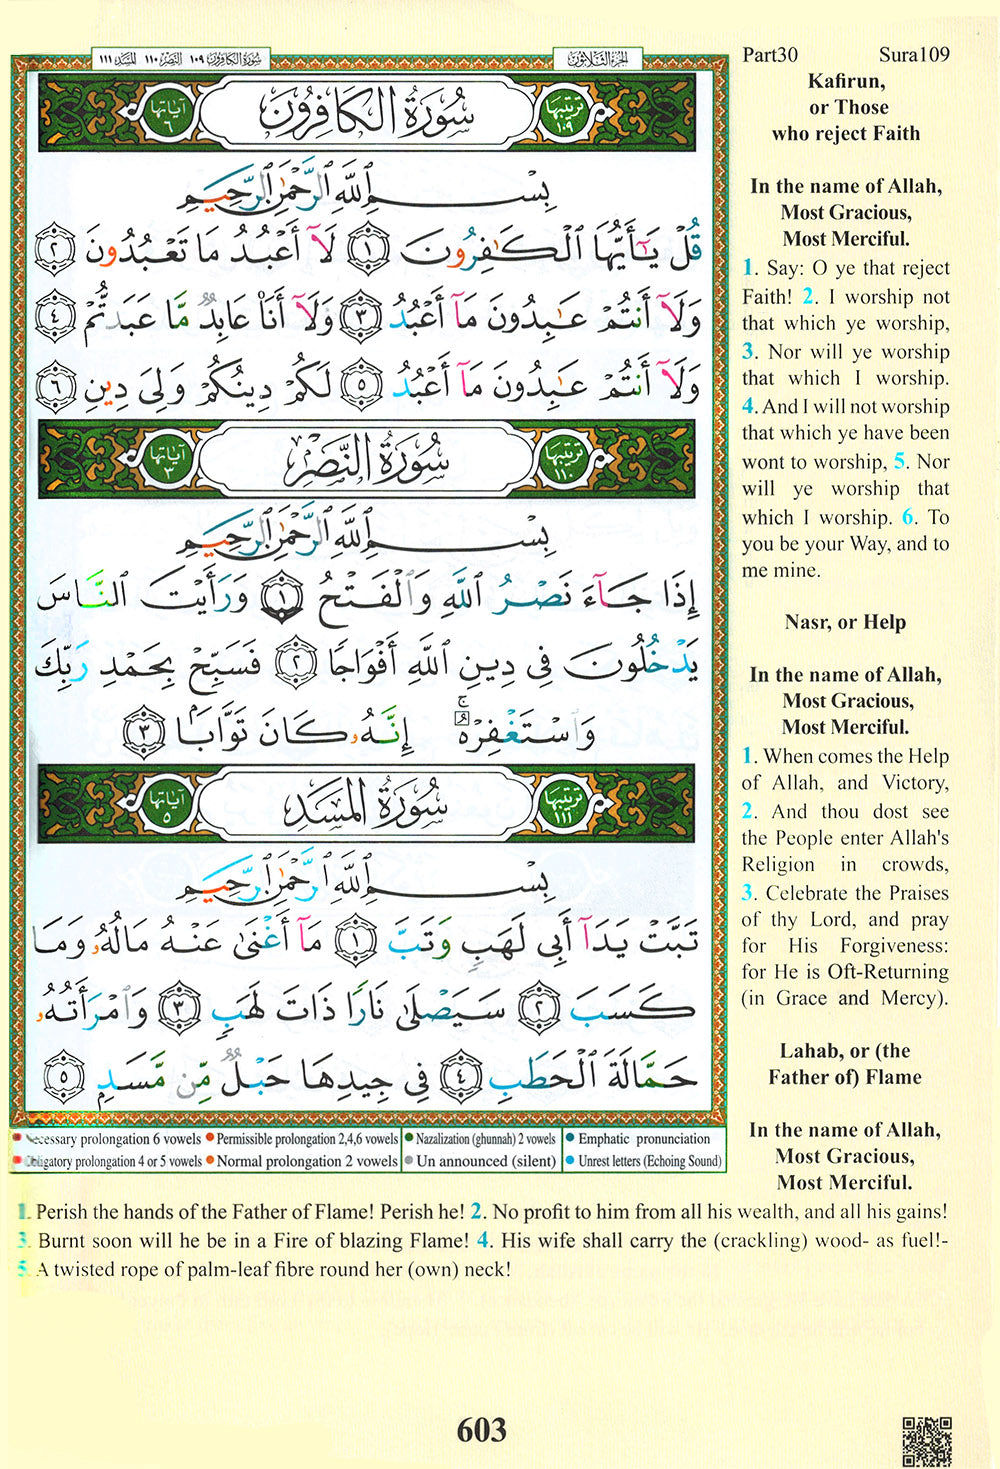 سورة الكافرون ١٠٩ النصر ١١٠ المسد ١١١
الجزء الثلاثون
ترتيبها ١٠٩
سُورَةُ الكَافِرُونَ
آياتها ٦
بِسْمِ ٱللَّهِ ٱلرَّحْمَٰنِ ٱلرَّحِيمِ
قُلْ يَٰٓأَيُّهَا ٱلْكَٰفِرُونَ ١ لَآ أَعْبُدُ مَا تَعْبُدُونَ ٢
وَلَآ أَنتُمْ عَٰبِدُونَ مَآ أَعْبُدُ ٣ وَلَآ أَنَا۠ عَابِدٌ مَّا عَبَدتُّمْ ٤
وَلَآ أَنتُمْ عَٰبِدُونَ مَآ أَعْبُدُ ٥ لَكُمْ دِينُكُمْ وَلِىَ دِينِ ٦
ترتيبها ١١٠
سُورَةُ النَّصْرِ
آياتها ٣
بِسْمِ ٱللَّهِ ٱلرَّحْمَٰنِ ٱلرَّحِيمِ
إِذَا جَآءَ نَصْرُ ٱللَّهِ وَٱلْفَتْحُ ١ وَرَأَيْتَ ٱلنَّاسَ
يَدْخُلُونَ فِى دِينِ ٱللَّهِ أَفْوَاجًا ٢ فَسَبِّحْ بِحَمْدِ رَبِّكَ
وَٱسْتَغْفِرْهُ ۚ إِنَّهُۥ كَانَ تَوَّابًۢا ٣
ترتيبها ١١١
سُورَةُ المَسَدِ
آياتها ٥
بِسْمِ ٱللَّهِ ٱلرَّحْمَٰنِ ٱلرَّحِيمِ
تَبَّتْ يَدَآ أَبِى لَهَبٍ وَتَبَّ ١ مَآ أَغْنَىٰ عَنْهُ مَالُهُۥ وَمَا
كَسَبَ ٢ سَيَصْلَىٰ نَارًا ذَاتَ لَهَبٍ ٣ وَٱمْرَأَتُهُۥ
حَمَّالَةَ ٱلْحَطَبِ ٤ فِى جِيدِهَا حَبْلٌ مِّن مَّسَدٍۭ ٥
Necessary prolongation 6 vowels Permissible prolongation 2,4,6 vowels Nazalization (ghunnah) 2 vowels Emphatic pronunciation
Obligatory prolongation 4 or 5 vowels Normal prolongation 2 vowels Un announced (silent) Unrest letters (Echoing Sound)
Part30 Sura109
Kafirun,
or Those
who reject Faith
In the name of Allah,
Most Gracious,
Most Merciful.
1. Say: O ye that reject
Faith! 2. I worship not
that which ye worship,
3. Nor will ye worship
that which I worship.
4. And I will not worship
that which ye have been
wont to worship, 5. Nor
will ye worship that
which I worship. 6. To
you be your Way, and to
me mine.
Nasr, or Help
In the name of Allah,
Most Gracious,
Most Merciful.
1. When comes the Help
of Allah, and Victory,
2. And thou dost see
the People enter Allah's
Religion in crowds,
3. Celebrate the Praises
of thy Lord, and pray
for His Forgiveness:
for He is Oft-Returning
(in Grace and Mercy).
Lahab, or (the
Father of) Flame
In the name of Allah,
Most Gracious,
Most Merciful.
1. Perish the hands of the Father of Flame! Perish he! 2. No profit to him from all his wealth, and all his gains!
3. Burnt soon will he be in a Fire of blazing Flame! 4. His wife shall carry the (crackling) wood- as fuel!-
5. A twisted rope of palm-leaf fibre round her (own) neck!
603